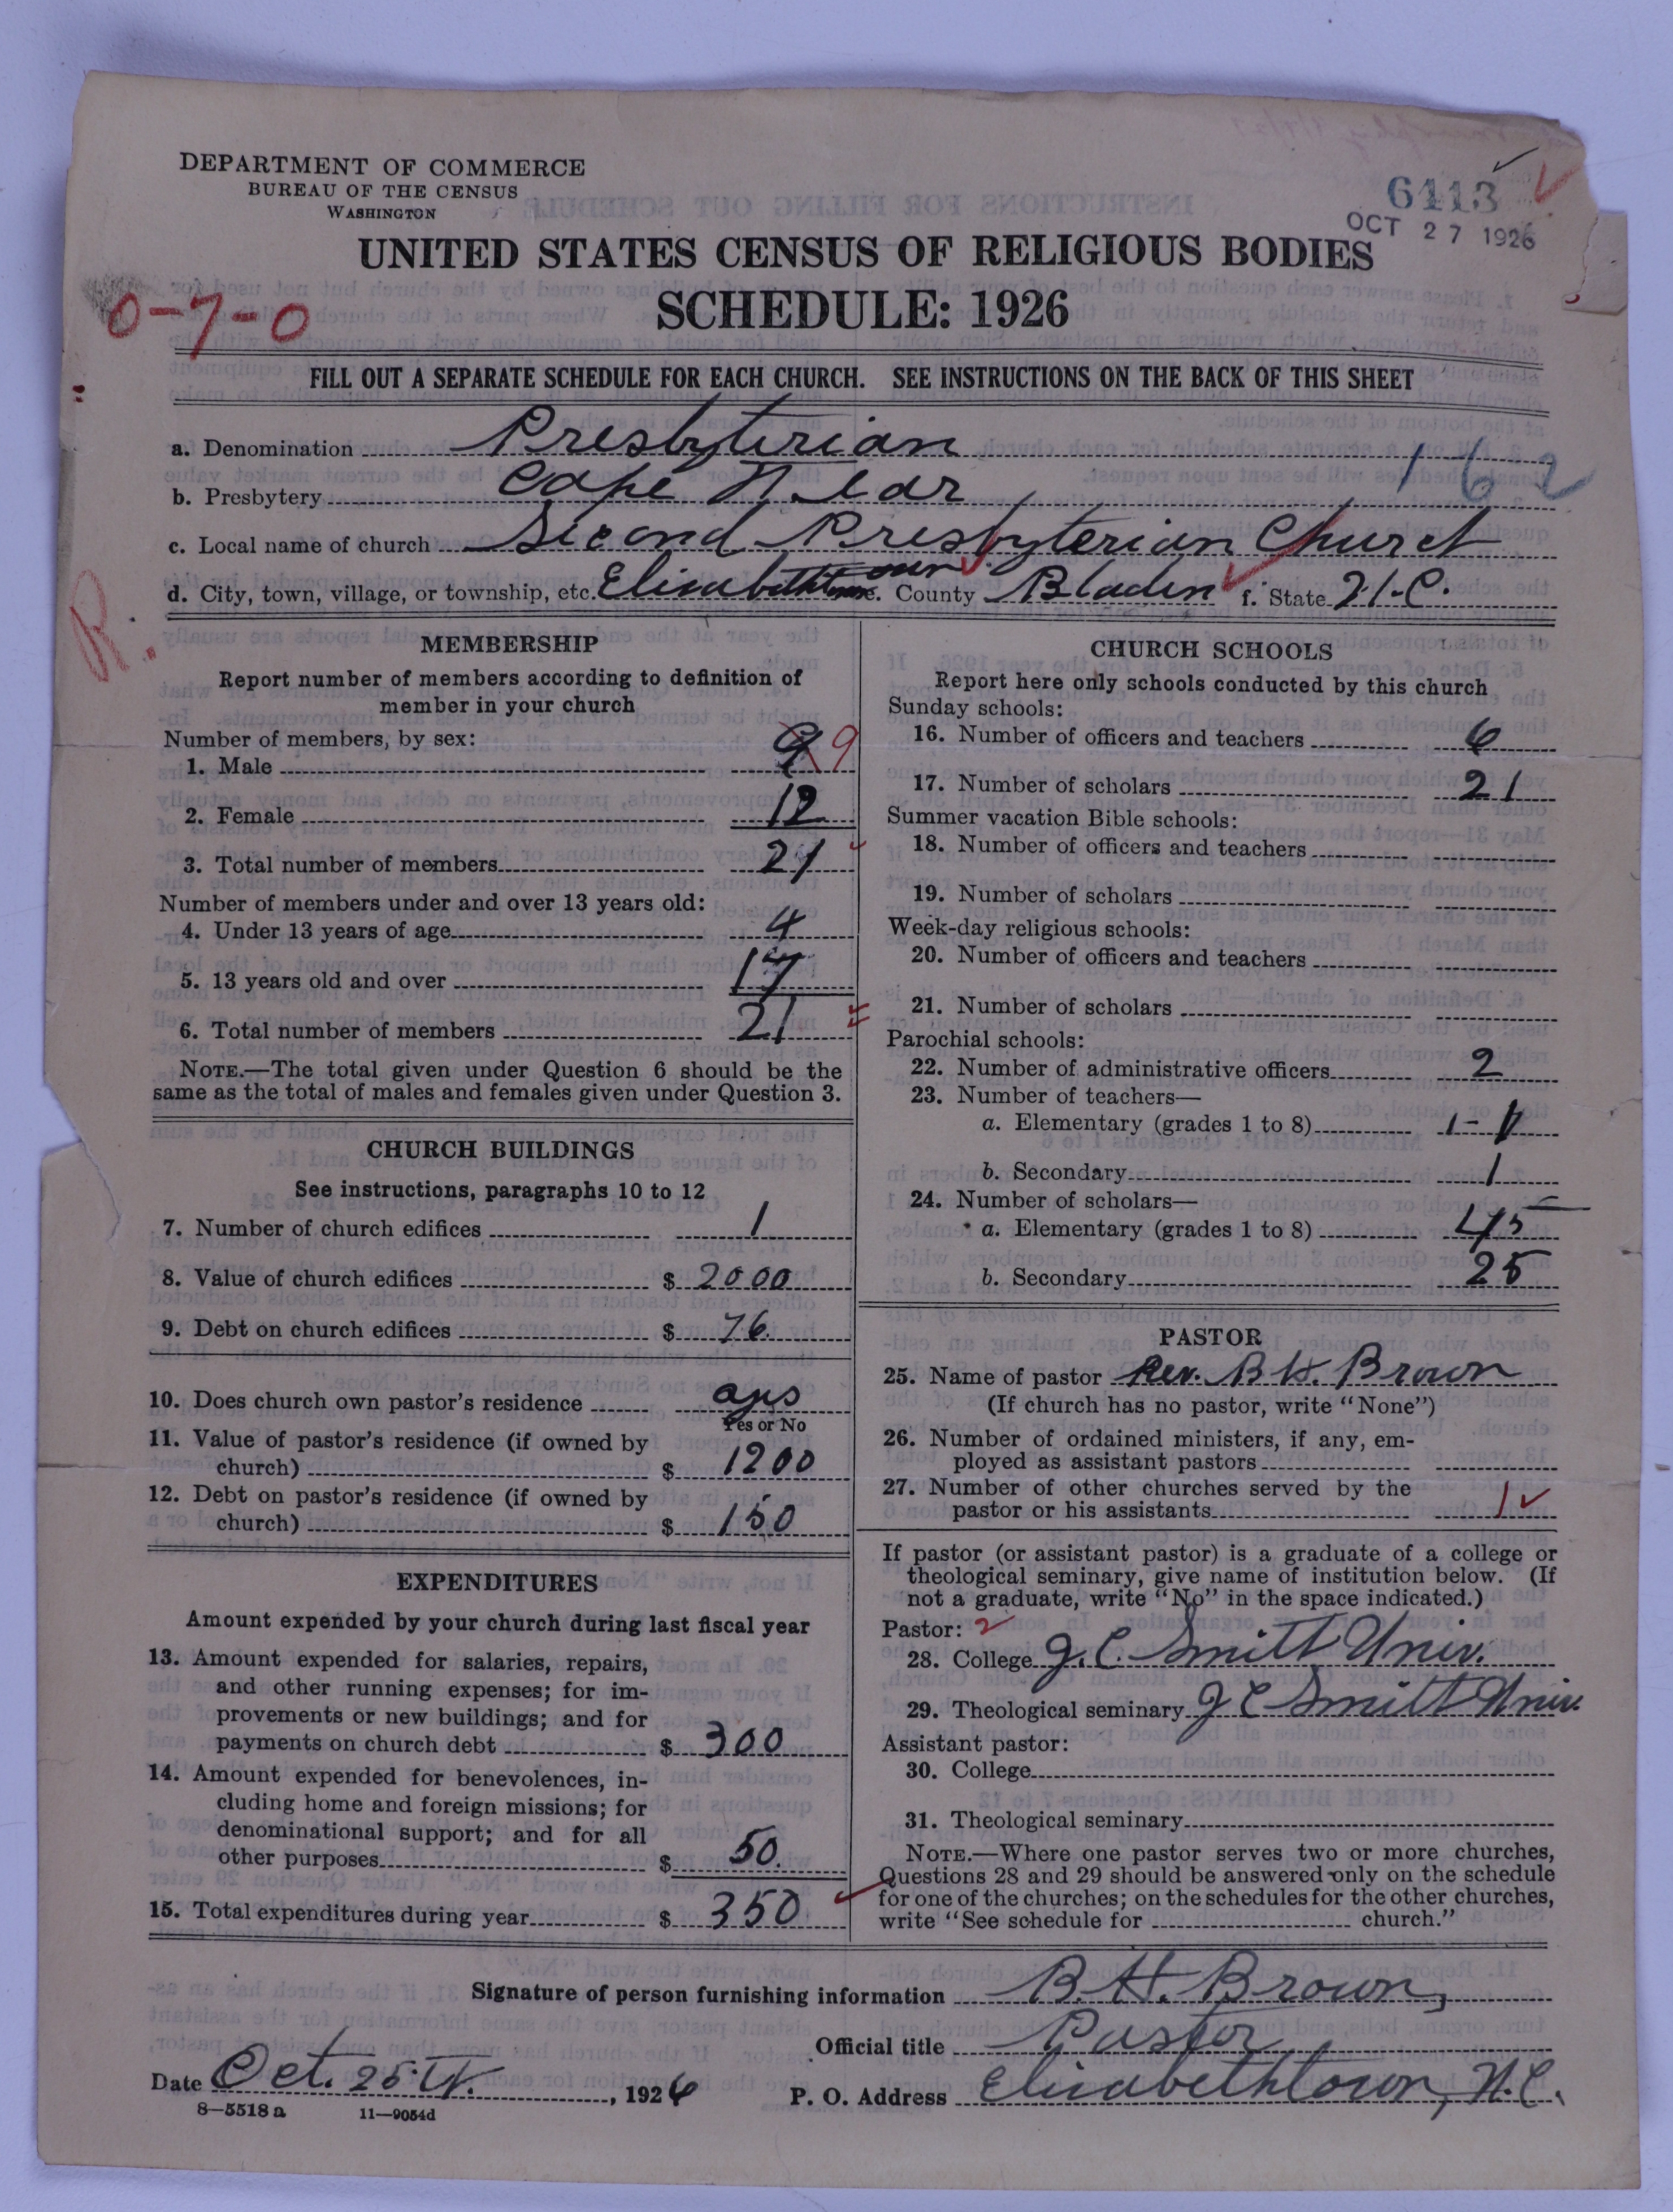 DEPARTMENT OF COMMERCE
BUREAU OF THE CENSUS
WASHINGTON
6113
OCT 27 1926
UNITED STATES CENSUS OF RELIGIOUS BODIES
SCHEDULE: 1926
0-7-0
FILL OUT A SEPARATE SCHEDULE FOR EACH CHURCH. SEE INSTRUCTIONS ON THE BACK OF THIS SHEET
a. Denomination Presbyterian
162
b. Presbytery Cape Fear
c. Local name of church Second Presbyterian Church
d. City, town, village, or township, etc. Elizabethtown e. County Bladen f. State N.C.
R.
MEMBERSHIP
Report number of members according to definition of
member in your church
Number of members, by sex:
1. Male 9 9
2. Female 12
3. Total number of members 21
Number of members under and over 13 years old:
4. Under 13 years of age 4
5. 13 years old and over 17
6. Total number of members 21
NOTE.—The total given under Question 6 should be the
same as the total of males and females given under Question 3.
CHURCH BUILDINGS
See instructions, paragraphs 10 to 12
7. Number of church edifices 1
8. Value of church edifices $ 2000
9. Debt on church edifices $ 76.
10. Does church own pastor's residence ays
Yes or No
11. Value of pastor's residence (if owned by
church) $ 1200
12. Debt on pastor's residence (if owned by
church) $ 150
EXPENDITURES
Amount expended by your church during last fiscal year
13. Amount expended for salaries, repairs,
and other running expenses; for im-
provements or new buildings; and for
payments on church debt $ 300
14. Amount expended for benevolences, in-
cluding home and foreign missions; for
denominational support; and for all
other purposes $ 50.
15. Total expenditures during year $ 350
CHURCH SCHOOLS
Report here only schools conducted by this church
Sunday schools:
16. Number of officers and teachers 6
17. Number of scholars 21
Summer vacation Bible schools:
18. Number of officers and teachers
19. Number of scholars
Week-day religious schools:
20. Number of officers and teachers
21. Number of scholars
Parochial schools:
22. Number of administrative officers 2
23. Number of teachers—
a. Elementary (grades 1 to 8) 1-1
b. Secondary 1
24. Number of scholars—
a. Elementary (grades 1 to 8) 45
b. Secondary 25
PASTOR
25. Name of pastor Rev. B H. Brown
(If church has no pastor, write "None")
26. Number of ordained ministers, if any, em-
ployed as assistant pastors
27. Number of other churches served by the
pastor or his assistants 1
If pastor (or assistant pastor) is a graduate of a college or
theological seminary, give name of institution below. (If
not a graduate, write "No" in the space indicated.)
Pastor: 2
28. College J. C. Smith Univ.
29. Theological seminary J C Smith Univ.
Assistant pastor:
30. College
31. Theological seminary
NOTE.—Where one pastor serves two or more churches,
Questions 28 and 29 should be answered only on the schedule
for one of the churches; on the schedules for the other churches,
write "See schedule for church."
Signature of person furnishing information B. H. Brown,
Official title Pastor
Date Oct. 25th, 1926 P. O. Address Elizabethtown, N.C.
8—5518 a 11—9054d